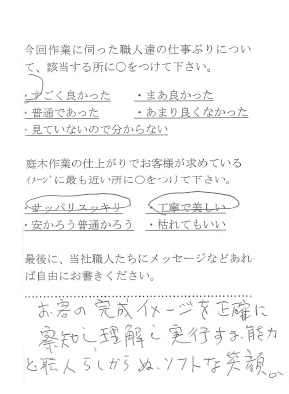 今回作業に伺った職人達の仕事ぶりについ
て、該当する所に○をつけて下さい。
・すごく良かった ・まあ良かった
・普通であった ・あまり良くなかった
・見ていないので分からない
庭木作業の仕上がりでお客様が求めている
ｲﾒｰｼﾞに最も近い所に○をつけて下さい。
・サッパリスッキリ ・丁寧で美しい
・安かろう普通かろう ・枯れてもいい
最後に、当社職人たちにメッセージなどあれ
ば自由にお書きください。
お客の完成イメージを正確に
察知し、理解し実行する能力
と職人らしからぬ、ソフトな笑顔。